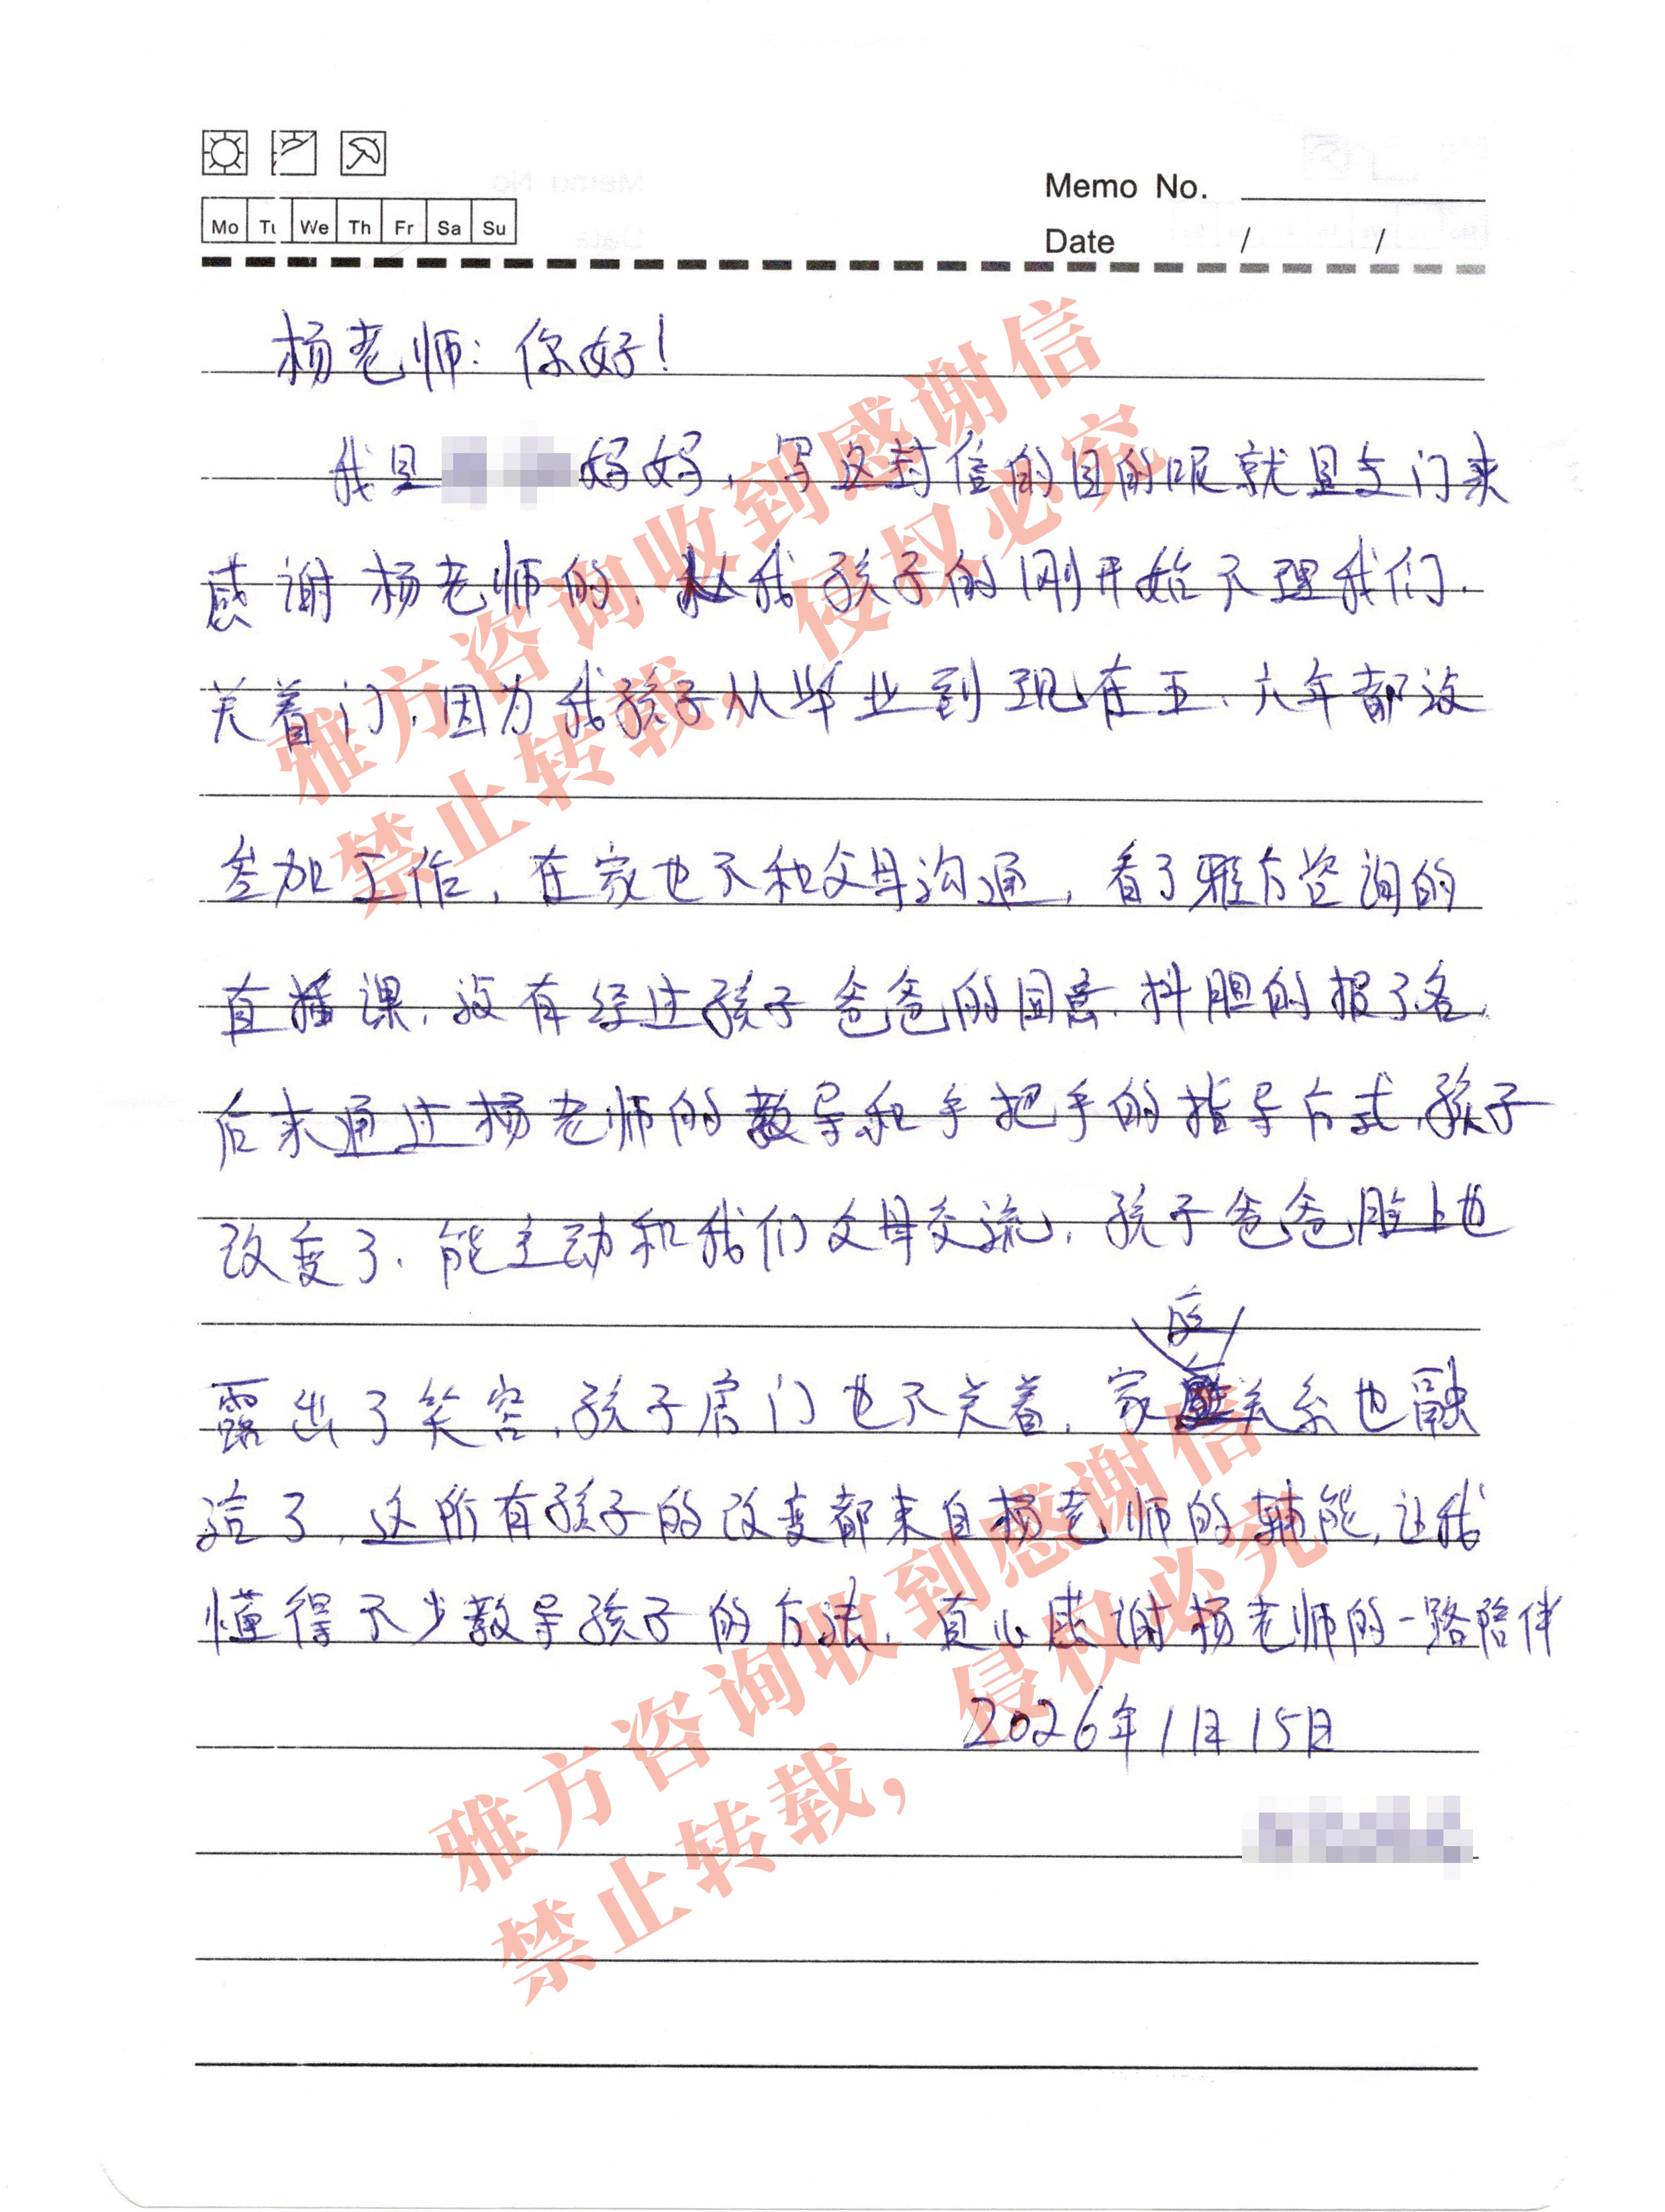 Mo Tu We Th Fr Sa Su
Memo No.
Date / /
杨老师：你好！
我是妈妈，写这封信的目的呢就是专门来
感谢杨老师的，我孩子的刚开始不理我们.
关着门，因为我孩子从毕业到现在五、六年都没
参加工作，在家也不和父母沟通，看了雅方咨询的
直播课，没有经过孩子爸爸的同意，抖胆的报了名，
后来通过杨老师的教导和手把手的指导方式，孩子
改变了，能主动和我们父母交流，孩子爸爸脸上也
露出了笑容，孩子房门也不关着，家的关系也融
洽了，这所有孩子的改变都来自杨老师的辅能，让我
懂得不少教导孩子的方法，真心感谢杨老师的一路陪伴
2026年1月15日
雅方咨询收到感谢信
禁止转载，侵权必究
雅方咨询收到感谢信
禁止转载，侵权必究